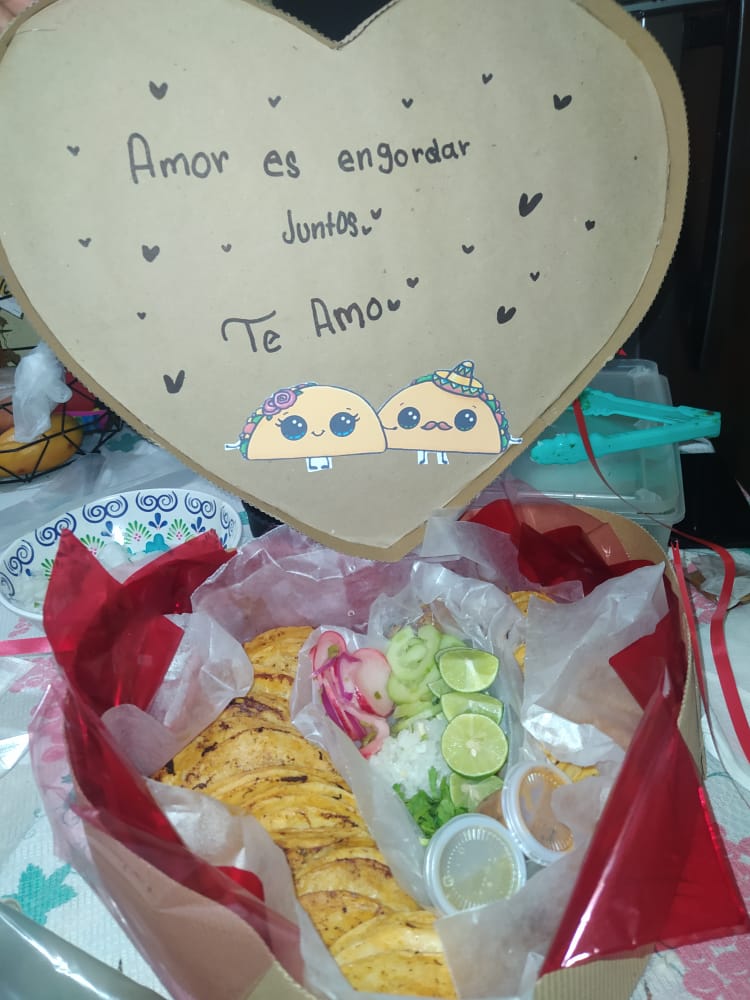 Amor es engordar
Juntos
Te Amo